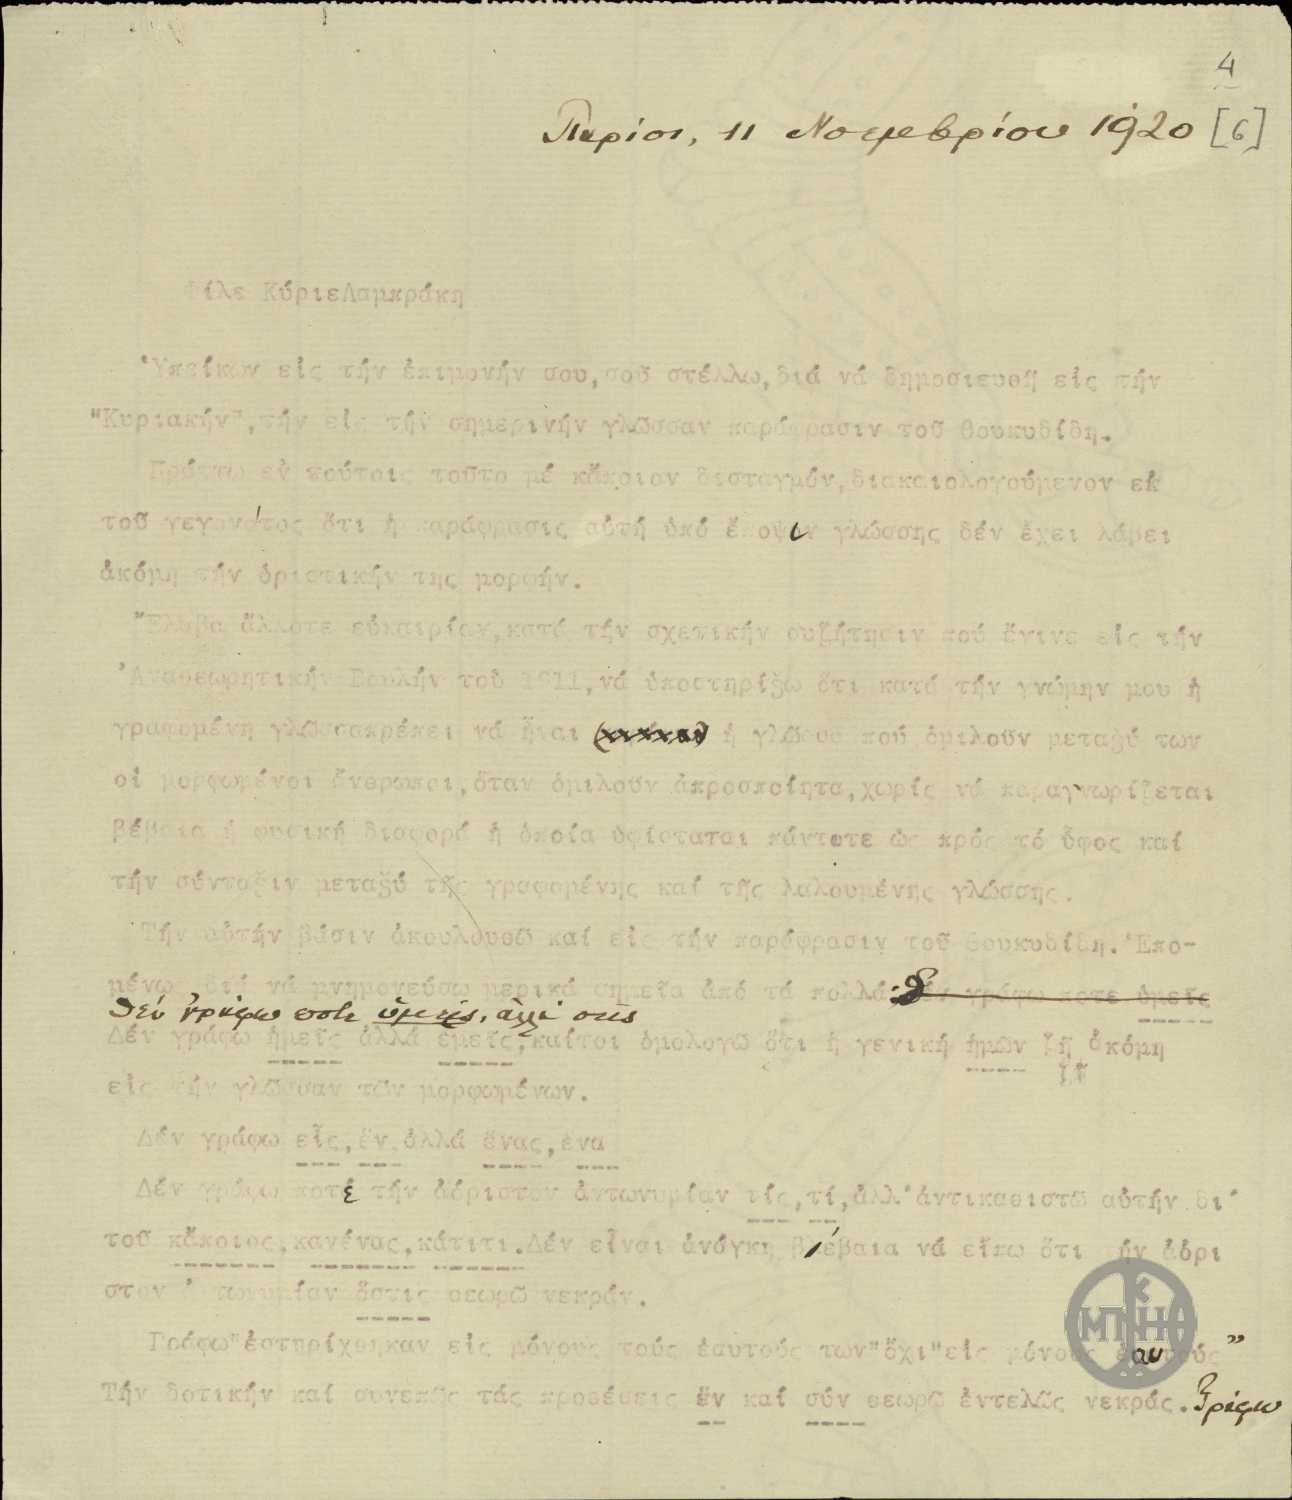 4
Παρίσι, 11 Νοεμβρίου 1920 [6]
Φίλε Κύριε Λαμπράκη
Ὑπείκων εἰς τήν ἐπιμονήν σου, σοῦ στέλλω, διά νά δημοσιευθῇ εἰς τήν
"Κυριακήν", τήν εἰς τήν σημερινήν γλῶσσαν παράφρασιν τοῦ Θουκυδίδη.
Πράττω ἐν τούτοις τοῦτο μέ κἄποιον δισταγμόν, διακαιολογούμενον ἐκ
τοῦ γεγονότος ὅτι ἡ παράφρασις αὐτή ὑπό ἔποψιν γλώσσης δέν ἔχει λάβει
ἀκόμη τήν ὁριστικήν της μορφήν.
Ἔλαβα ἄλλοτε εὐκαιρίαν, κατά τήν σχετικήν συζήτησιν πού ἔγινε εἰς τήν
Ἀναθεωρητικήν Βουλήν τοῦ 1911, νά ὑποστηρίξω ὅτι κατά τήν γνώμην μου ἡ
γραφομένη γλῶσσα πρέπει νά ἦναι ἡ γλῶσσα πού ὁμιλοῦν μεταξύ των
οἱ μορφωμένοι ἄνθρωποι, ὅταν ὁμιλοῦν ἀπροσποίητα, χωρίς νά παραγνωρίζεται
βέβαια ἡ φυσική διαφορά ἡ ὁποία ὑφίσταται πάντοτε ὡς πρός τό ὕφος καί
τήν σύνταξιν μεταξύ τῆς γραφομένης καί τῆς λαλουμένης γλώσσης.
Τήν αὐτήν βάσιν ἀκουλουθῶ καί εἰς τήν παράφρασιν τοῦ Θουκυδίδη. Ἑπο-
μένως διά νά μνημονεύσω μερικά σημεῖα ἀπό τά πολλά: δέν γράφω ποτε ὑμεῖς
Δέν γράφω ποτε ὑμεῖς, ἀλλά σεῖς
Δέν γράφω ἡμεῖς ἀλλά ἐμεῖς, καίτοι ὁμολογῶ ὅτι ἡ γενική ἡμῶν ζῇ ἀκόμη
ζῇ
εἰς τήν γλῶσσαν τῶν μορφωμένων.
Δέν γράφω εἷς, ἕν, ἀλλά ἕνας, ἕνα
Δέν γράφω ποτέ τήν ἀόριστον ἀντωνυμίαν τίς, τί, ἀλλ' ἀντικαθιστῶ αὐτήν δι'
τοῦ κἄποιος, κανένας, κάτιτι. Δέν εἶναι ἀνάγκη βέβαια νά εἴπω ὅτι τήν ἀόρι
στον ἀντωνυμίαν ὅστις θεωρῶ νεκράν.
Γράφω "ἐστηρίχθηκαν εἰς μόνους τούς ἑαυτούς των" ὄχι "εἰς μόνους ἑαυτούς"
Τήν δοτικήν καί συνεπῶς τάς προθέσεις ἐν καί σύν θεωρῶ ἐντελῶς νεκράς. Γράφω